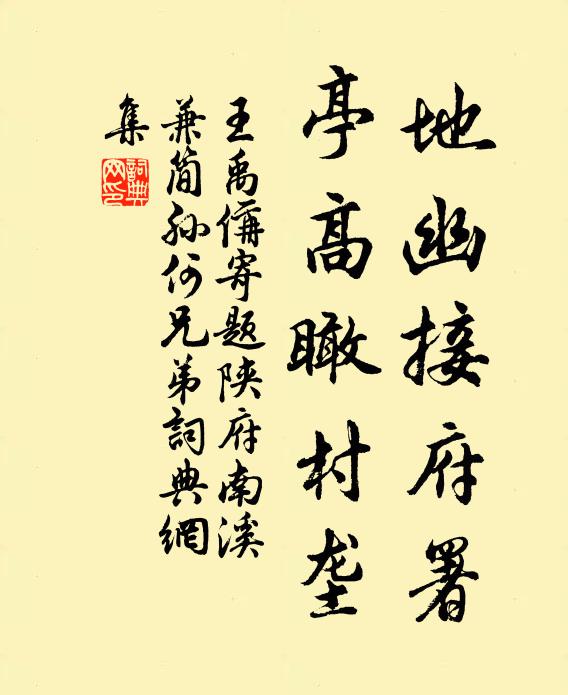 地幽接府署
亭高瞰村垄
王禹偁寄题陕府南溪
兼简孙何兄弟詞典網
集
詞典
网印